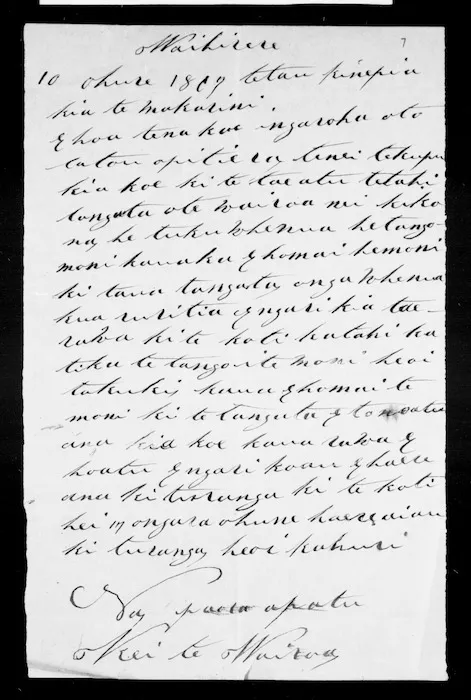 Waihirere
7
10 ohure 1869 tetau kinepia
kia te makarini.
Ehoa tena koe ngaroha oto
tatou opitiera tenei tekupu
kia koe ki te tae atu tetahi
tangata ote wairoa nei kiko
na he tuku Whenua hetango
moni kauaka E homai hemoni
ki taua tangata onga Whenua
kua ruritia Engari kia tae-
rawa kite koti katahi ka
tika te tangoite moni heoi
takukii kaua E homai te
moni ki te tangata E tonoatu
ana kia koe kaua rawa E
hoatu Engari koau E haere
ana ki turanga ki te koti
hei ongara ohune haere aiau
ki turanga heoi kahuri
Na paora apatu
Kei te Wairoa